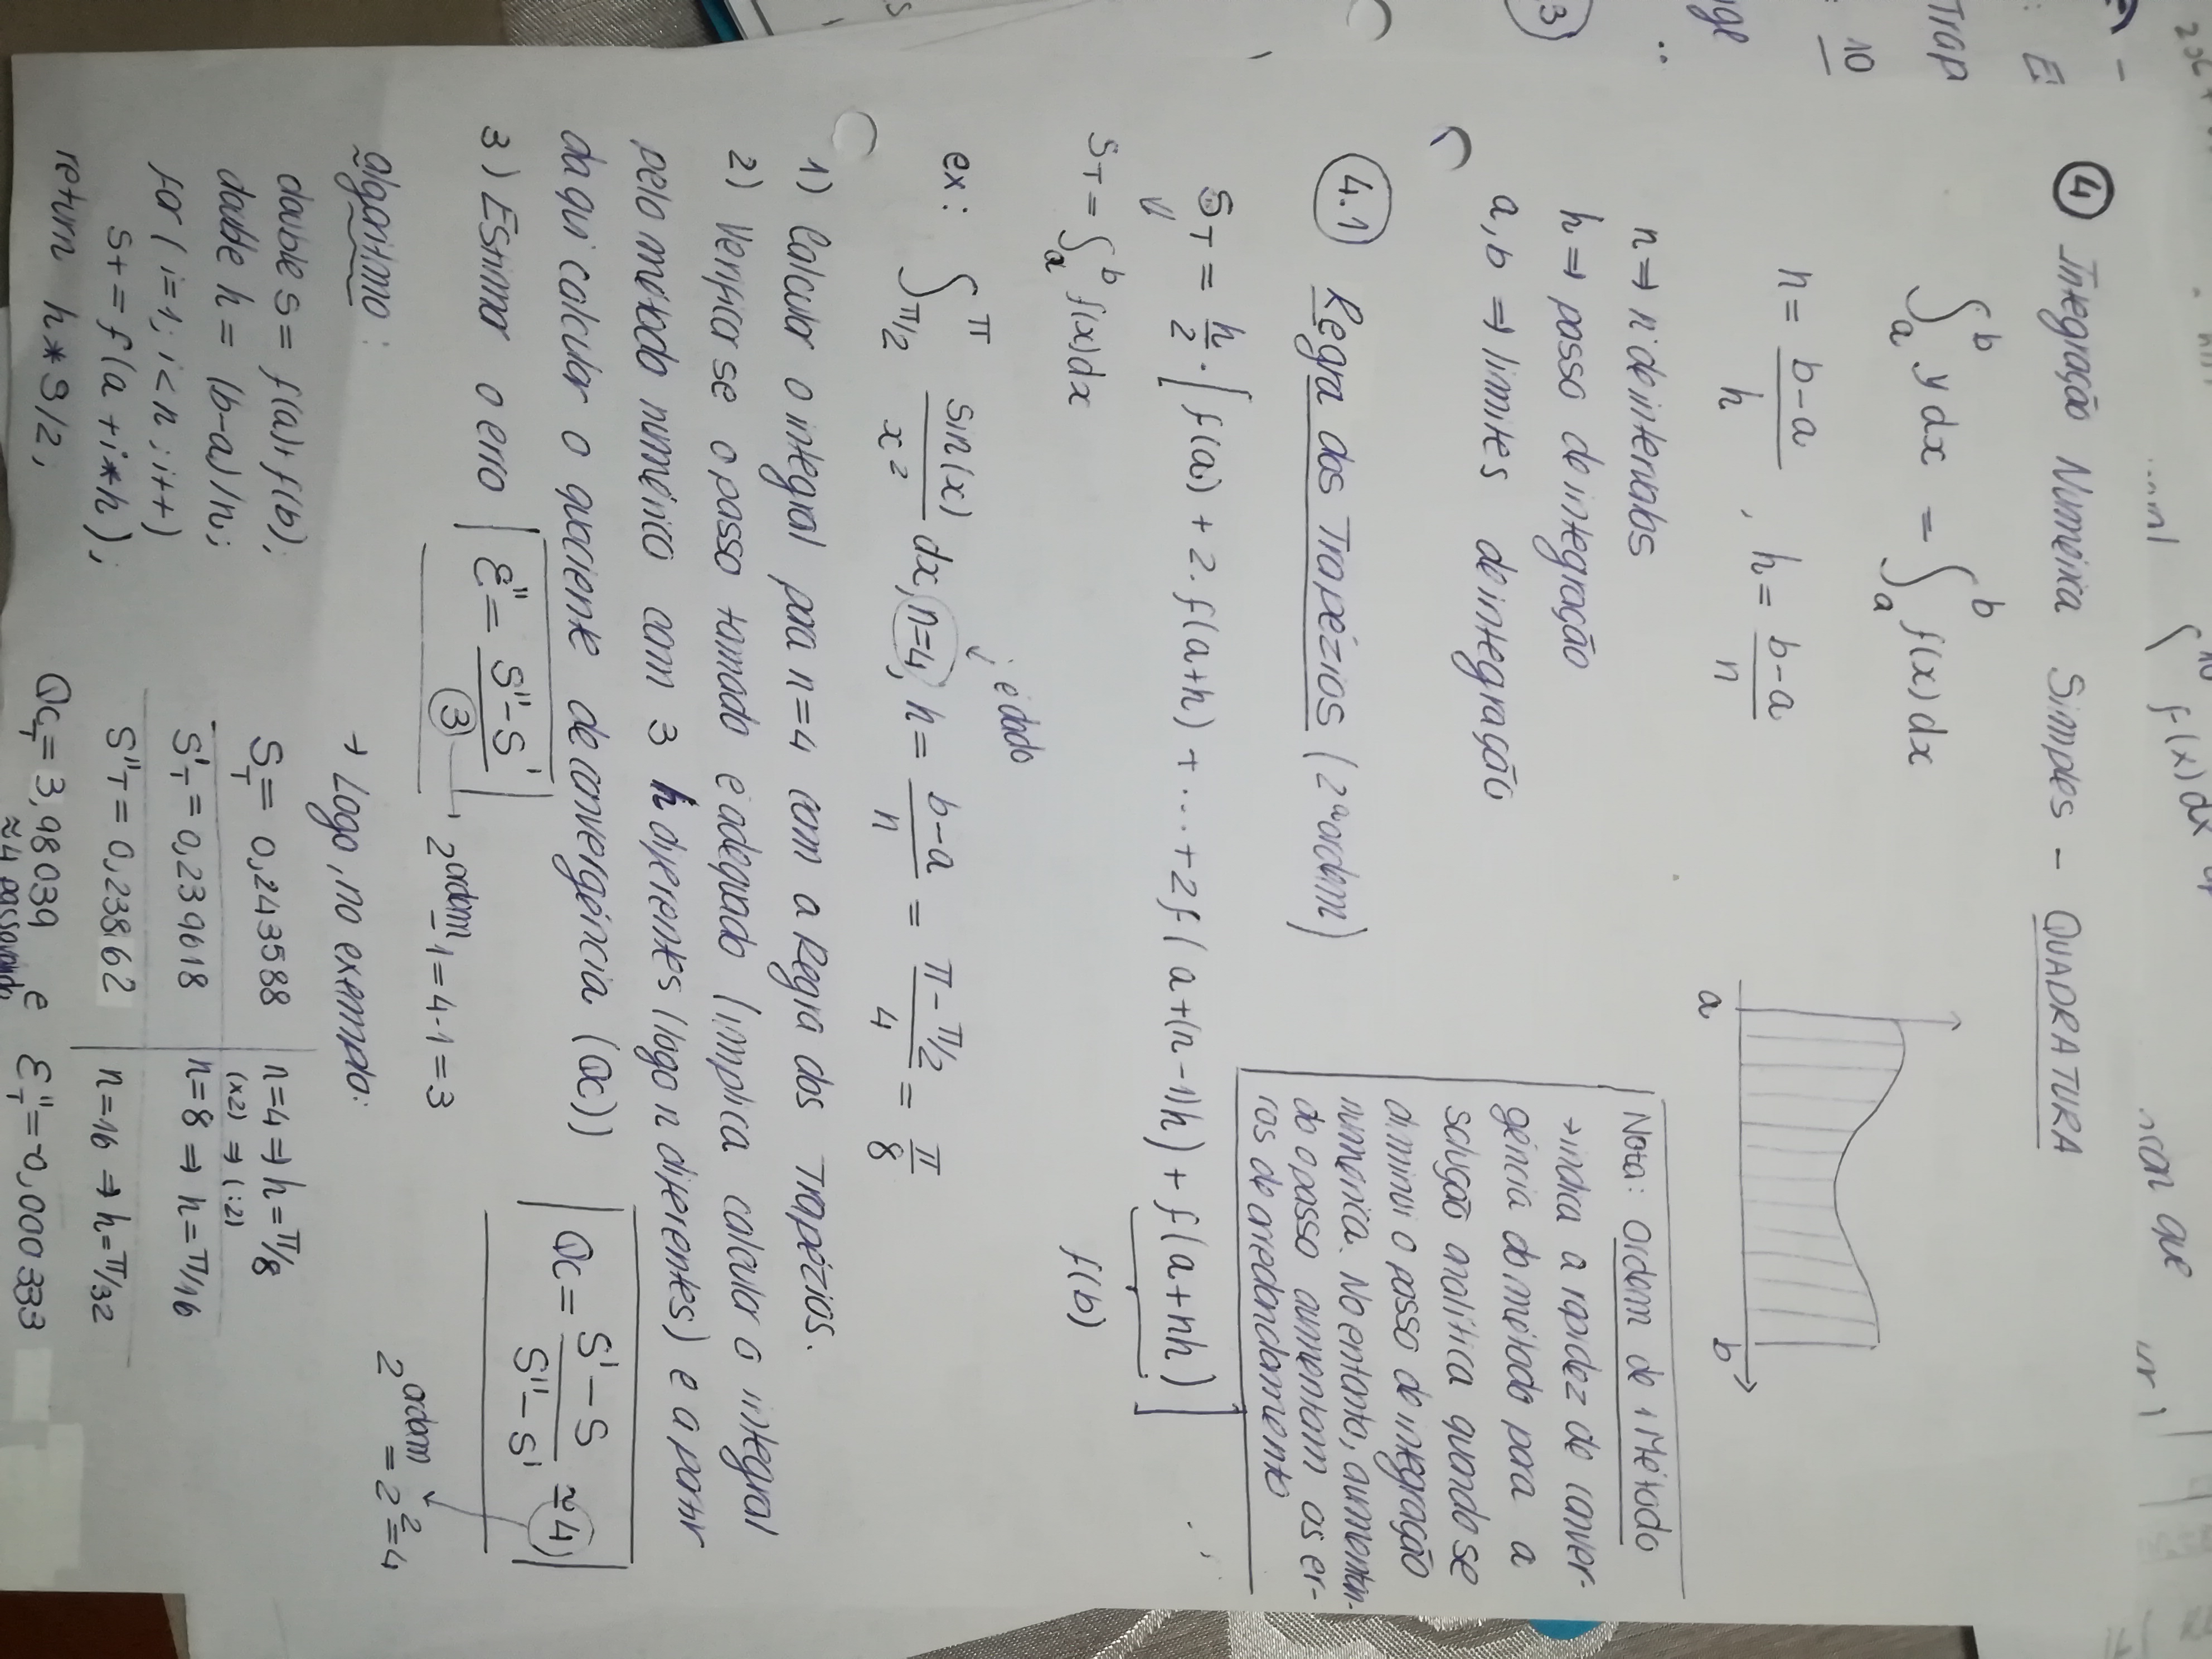 f(x)dx
que
④ Integração Numérica Simples - QUADRATURA
∫ₐᵇ y dx = ∫ₐᵇ f(x) dx
n = (b-a)/h , h = (b-a)/n
a b
n ⇒ nº de intervalos
h ⇒ passo de integração
a, b ⇒ limites de integração
Nota: Ordem de 1 Método
→ indica a rapidez de conver-
gência do método para a
solução analítica quando se
diminui o passo de integração
numérica. No entanto, aumentan-
do o passo aumentam os er-
ros de arredondamento
4.1 Regra dos Trapézios (2ª ordem)
S_T = h/2 · [f(a) + 2.f(a+h) + ... + 2f(a+(n-1)h) + f(a+nh)]
f(b)
S_T = ∫ₐᵇ f(x)dx
é dado
ex: ∫_{π/2}^{π} sin(x)/x² dx, n=4, h = (b-a)/n = (π-π/2)/4 = π/8
1) Calcular o integral para n=4 com a Regra dos Trapézios.
2) Verificar se o passo tomado é adequado (implica calcular o integral
pelo método numérico com 3 h diferentes (logo n diferentes) e a partir
daqui calcular o quociente de convergência (QC))
QC = (S'-S)/(S''-S') ≃ 4
2^ordem = 2² = 4
3) Estimar o erro ε'' = (S''-S')/3
2^ordem - 1 = 4-1 = 3
algoritmo:
double s = f(a)+f(b);
double h = (b-a)/n;
for (i=1; i<n; i++)
s+=f(a+i*h);
return h*s/2;
→ Logo, no exemplo:
S_T = 0,243588 n=4 ⇒ h=π/8
(x2) ⇒ (:2)
S'_T = 0,239618 n=8 ⇒ h=π/16
S''_T = 0,23862 n=16 ⇒ h=π/32
QC_T = 3,98039 e ε''_T = -0,000333
≈4
Trap
10
3